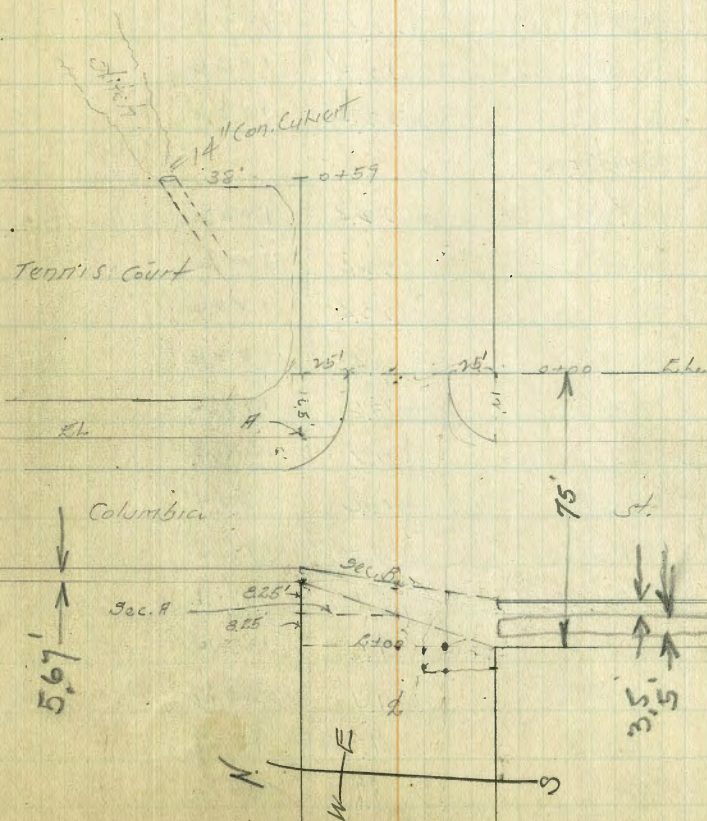 ditch
14" Con. Culvert
38'
0+59
Tennis Court
25'
25'
0+00
E.L.
12.5'
12'
A
EL
Columbia
75'
St.
Sec. B
8.25'
Sec. A
8.25
5.67'
3.5'
5'
N
E
W
S